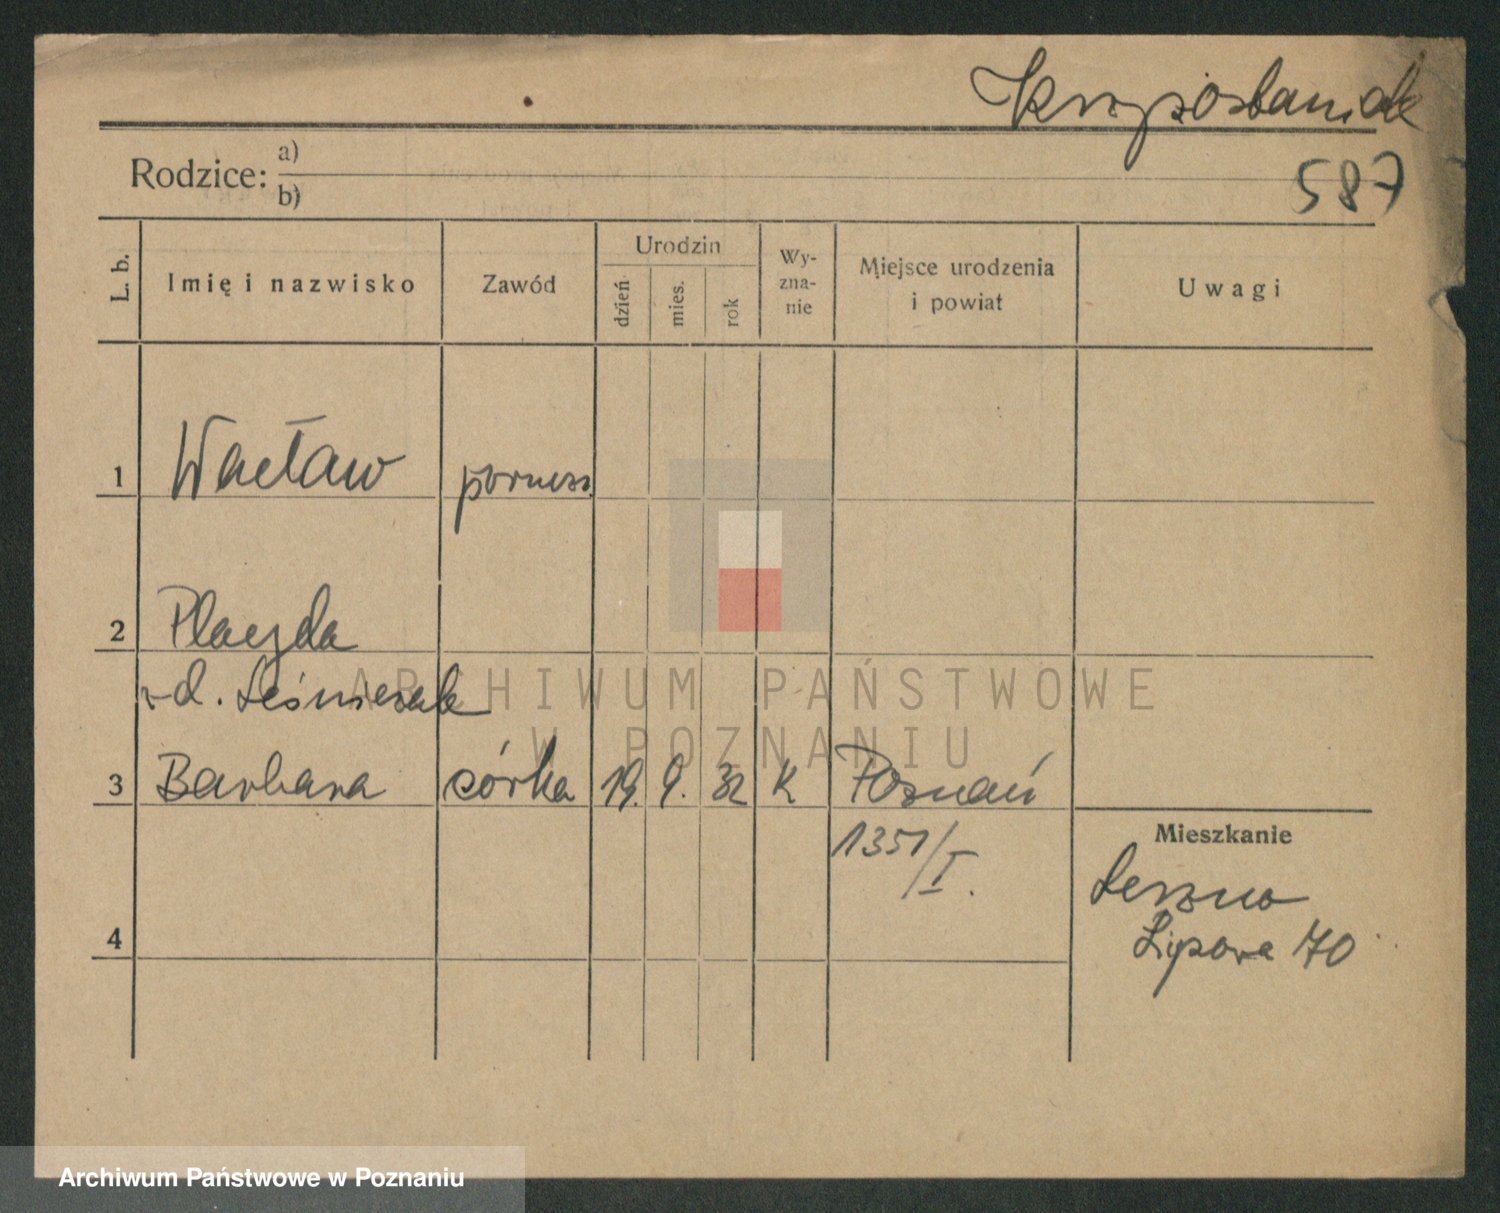 Krzyżostaniak
587
Rodzice: a)
b)
L. b.
Imię i nazwisko
Zawód
Urodzin
dzień
mies.
rok
Wy-
zna-
nie
Miejsce urodzenia
i powiat
Uwagi
1 Wacław
2 Placyda
3 Barbara córka 19. 9. 32 K Poznań
1351/I.
4
Mieszkanie
Leszno
Lipowa 70
ARCHIWUM PAŃSTWOWE
W POZNANIU
Archiwum Państwowe w Poznaniu